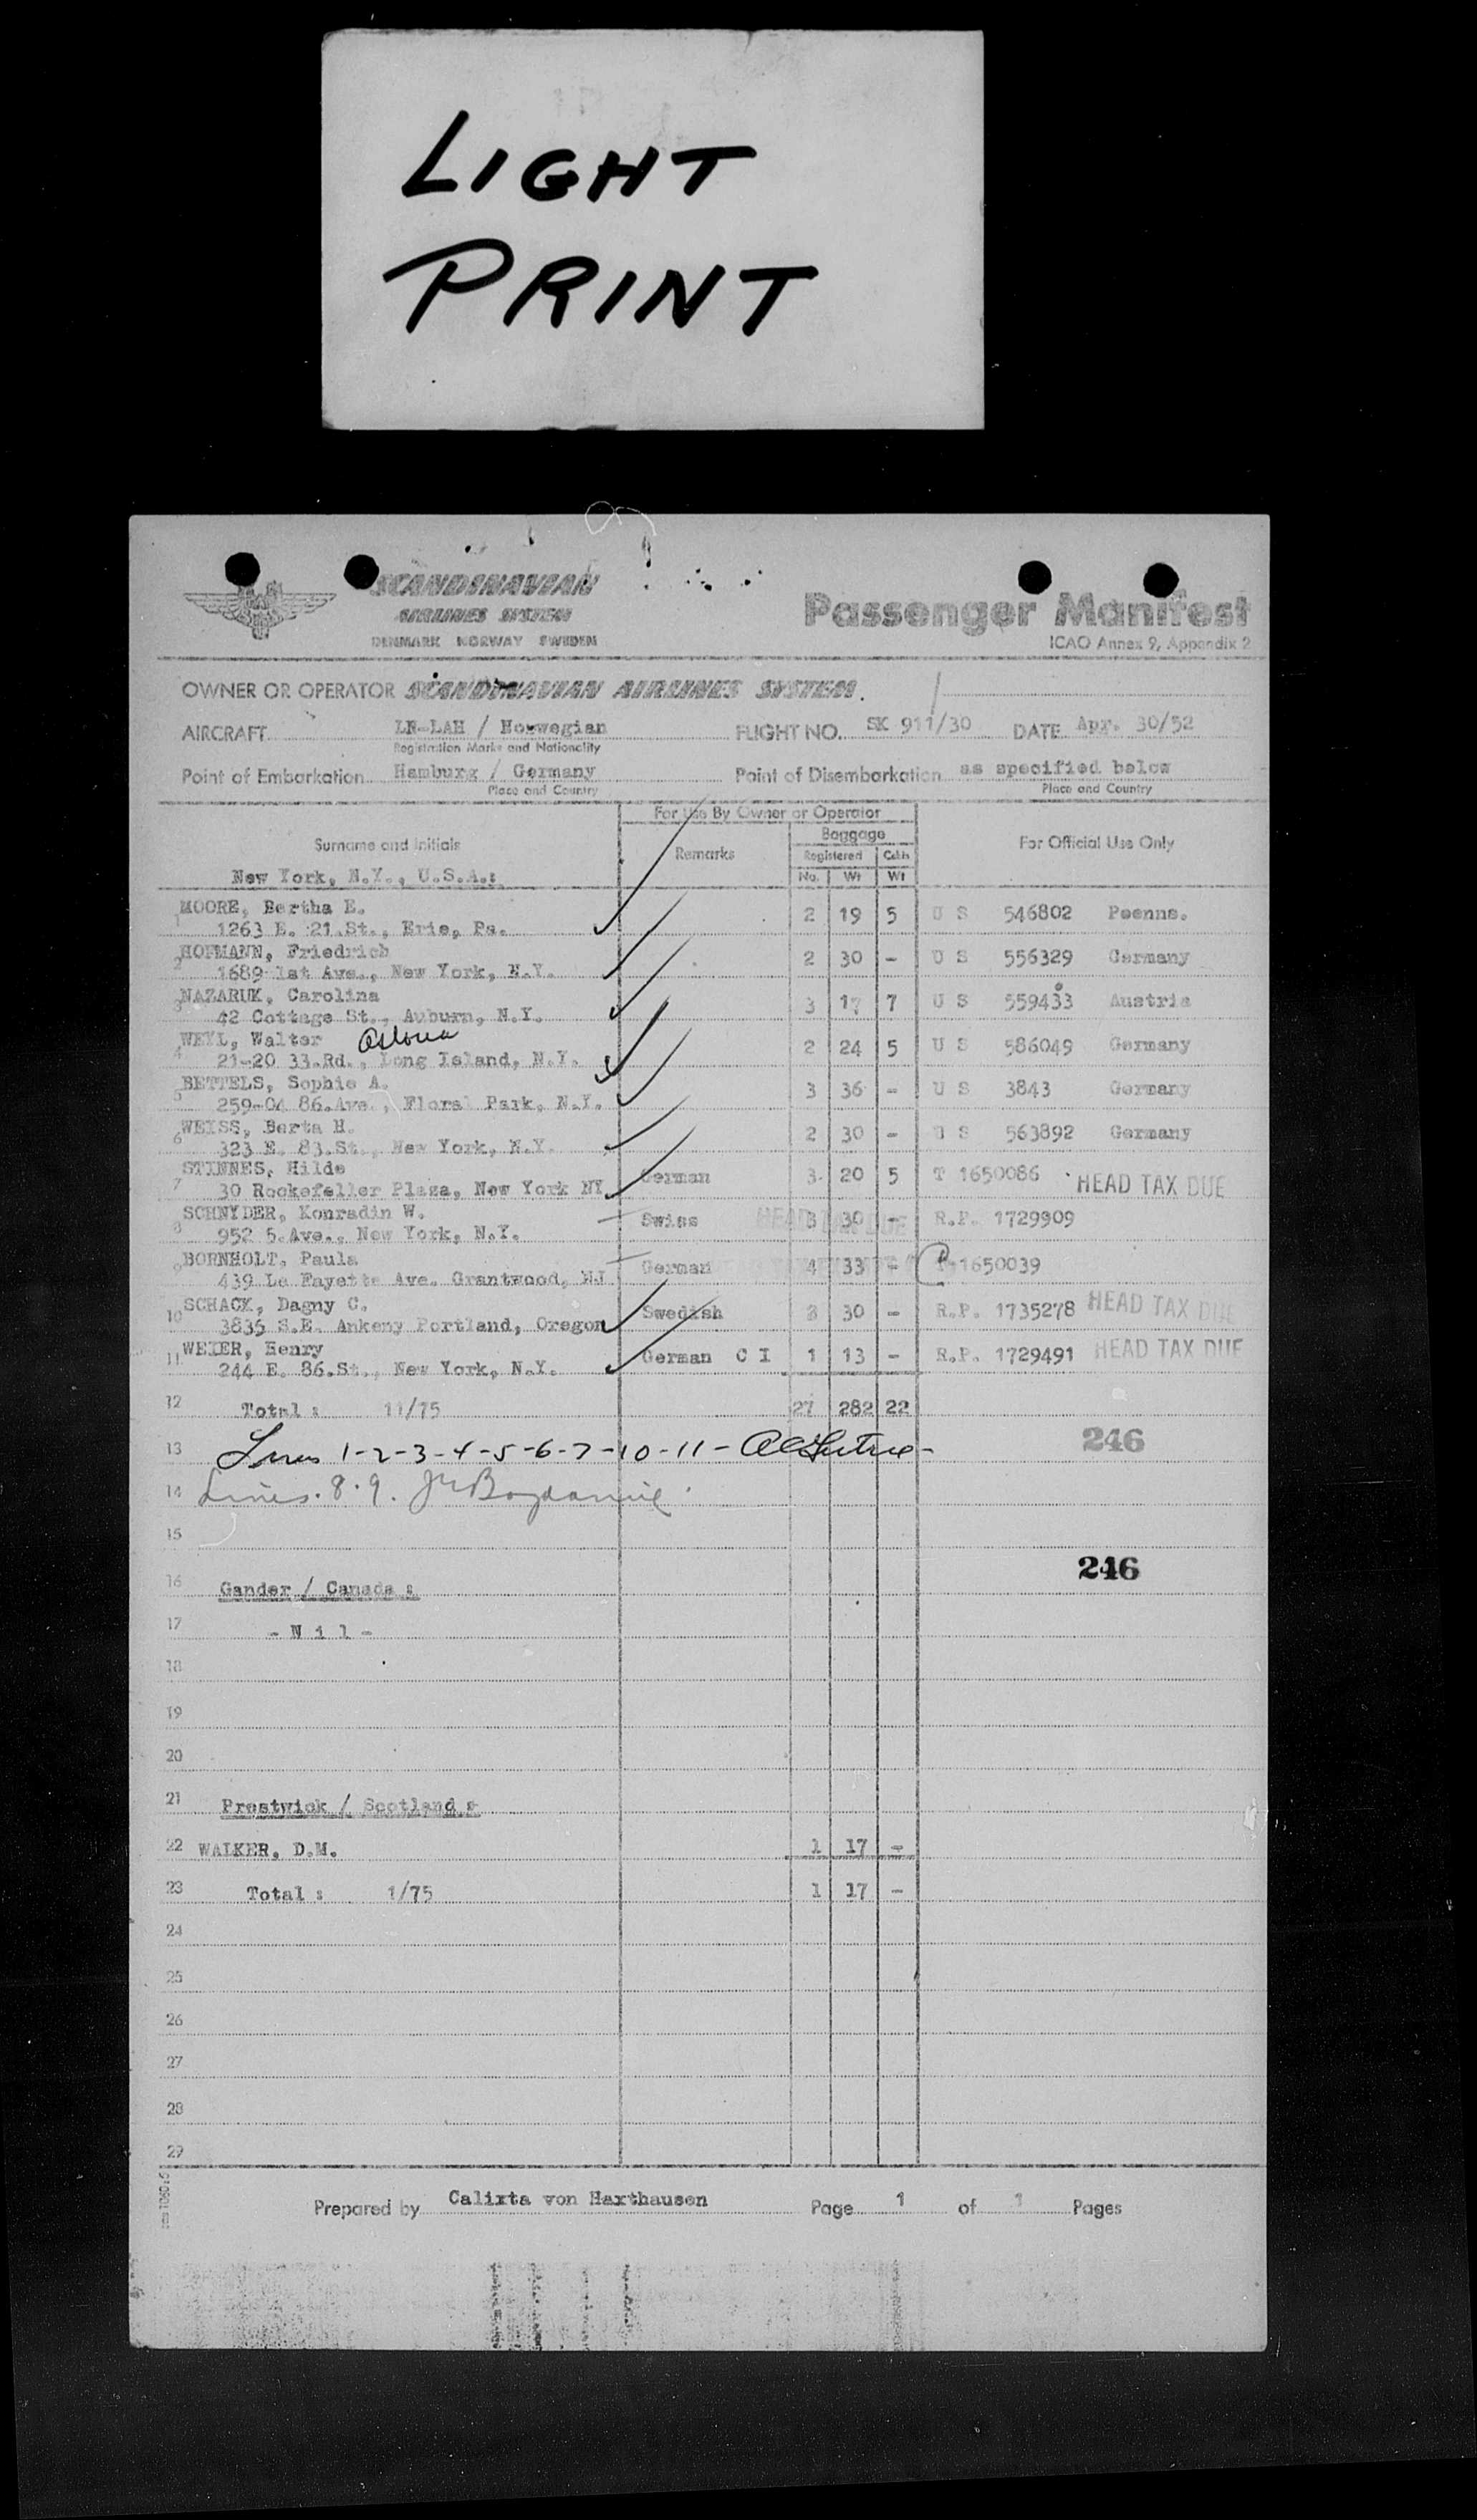 LIGHT
PRINT
SCANDINAVIAN
AIRLINES SYSTEM
DENMARK NORWAY SWEDEN
Passenger Manifest
ICAO Annex 9, Appendix 2
OWNER OR OPERATOR SCANDINAVIAN AIRLINES SYSTEM
AIRCRAFT LN-LAH / Norwegian FLIGHT NO. SK 911/30 DATE Apr. 30/52
Registration Marks and Nationality
Point of Embarkation Hamburg / Germany Point of Disembarkation as specified below
Place and Country Place and Country
For Use By Owner or Operator
Surname and Initials Remarks Baggage For Official Use Only
Registered Cabin
New York, N.Y., U.S.A.: No. Wt Wt
1 MOORE, Bertha E. 2 19 5 U S 546802 Peenns.
1263 E. 21.St., Erie, Pa.
2 HOFMANN, Friedrich 2 30 - U S 556329 Germany
1689 1st Ave., New York, N.Y.
3 NAZARUK, Carolina 3 17 7 U S 559433 Austria
42 Cottage St., Auburn, N.Y.
4 WEYL, Walter Astoria 2 24 5 U S 586049 Germany
21-20 33.Rd., Long Island, N.Y.
5 BETTELS, Sophie A. 3 36 - U S 3843 Germany
259-04 86.Ave., Floral Park, N.Y.
6 WEISS, Berta H. 2 30 - U S 563892 Germany
323 E. 83.St., New York, N.Y.
7 STINNES, Hilde German 3 20 5 T 1650086 HEAD TAX DUE
30 Rockefeller Plaza, New York NY
8 SCHNYDER, Konradin W. Swiss HEAD TAX DUE 3 30 - R.P. 1729909
952 5.Ave., New York, N.Y.
9 BORNHOLT, Paula German 4 33 - 1650039
439 La Fayette Ave. Grantwood, NJ
10 SCHACK, Dagny C. Swedish 3 30 - R.P. 1735278 HEAD TAX DUE
3835 S.E. Ankeny Portland, Oregon
11 WEIER, Henry German C I 1 13 - R.P. 1729491 HEAD TAX DUE
244 E. 86.St., New York, N.Y.
12 Total : 11/75 27 282 22
13 Lines 1-2-3-4-5-6-7-10-11- 246
14 Lines. 8.9.
15
16 Gander / Canada : 246
17 - N i l -
18
19
20
21 Prestwick / Scotland :
22 WALKER, D.M. 1 17 -
23 Total : 1/75 1 17 -
24
25
26
27
28
29
Prepared by Calixta von Haxthausen Page 1 of 1 Pages